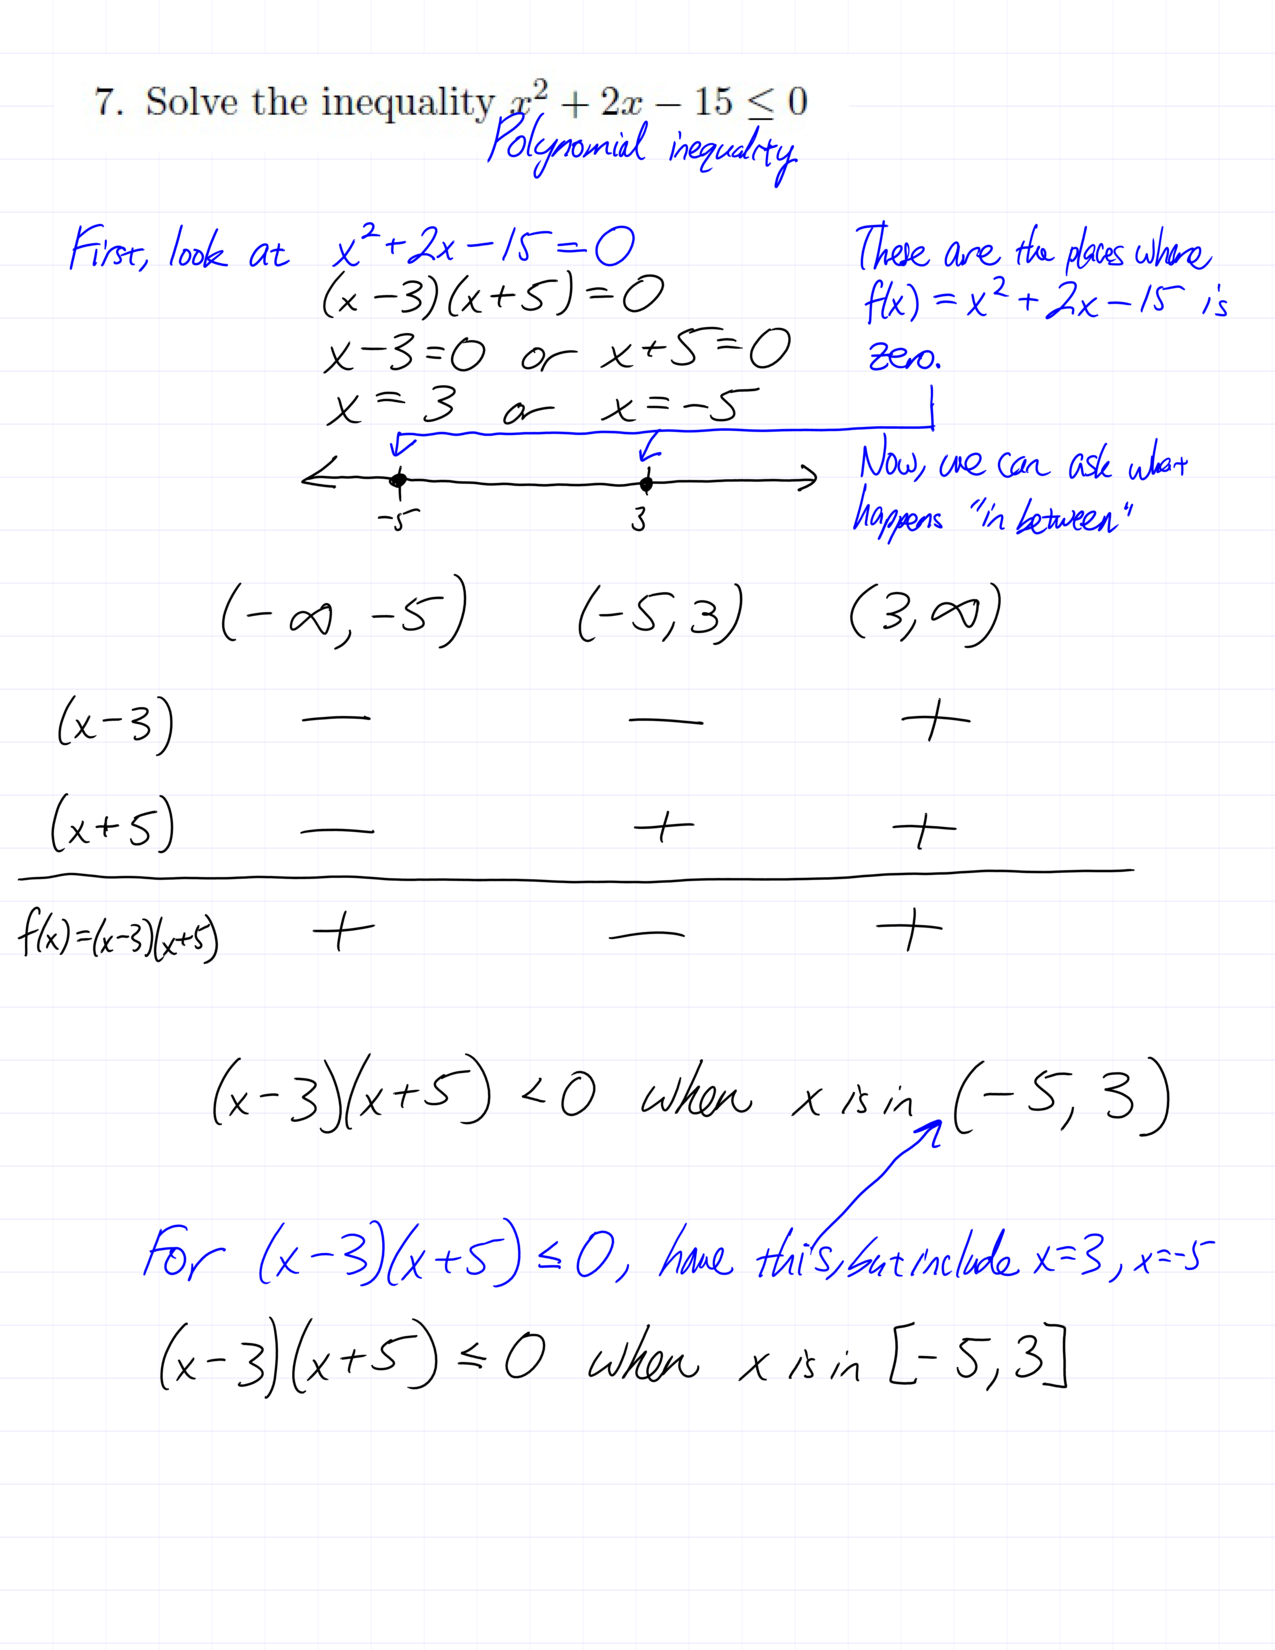 7. Solve the inequality x² + 2x − 15 ≤ 0
Polynomial inequality
First, look at x²+2x−15=0
(x−3)(x+5)=0
x−3=0 or x+5=0
x=3 or x=−5
These are the places where
f(x) = x²+2x−15 is
zero.
Now, we can ask what
happens "in between"
−5 3
(−∞,−5) (−5,3) (3,∞)
(x−3) − − +
(x+5) − + +
f(x)=(x−3)(x+5) + − +
(x−3)(x+5) <0 when x is in (−5, 3)
For (x−3)(x+5) ≤ 0, have this, but include x=3, x=−5
(x−3)(x+5) ≤ 0 when x is in [−5,3]